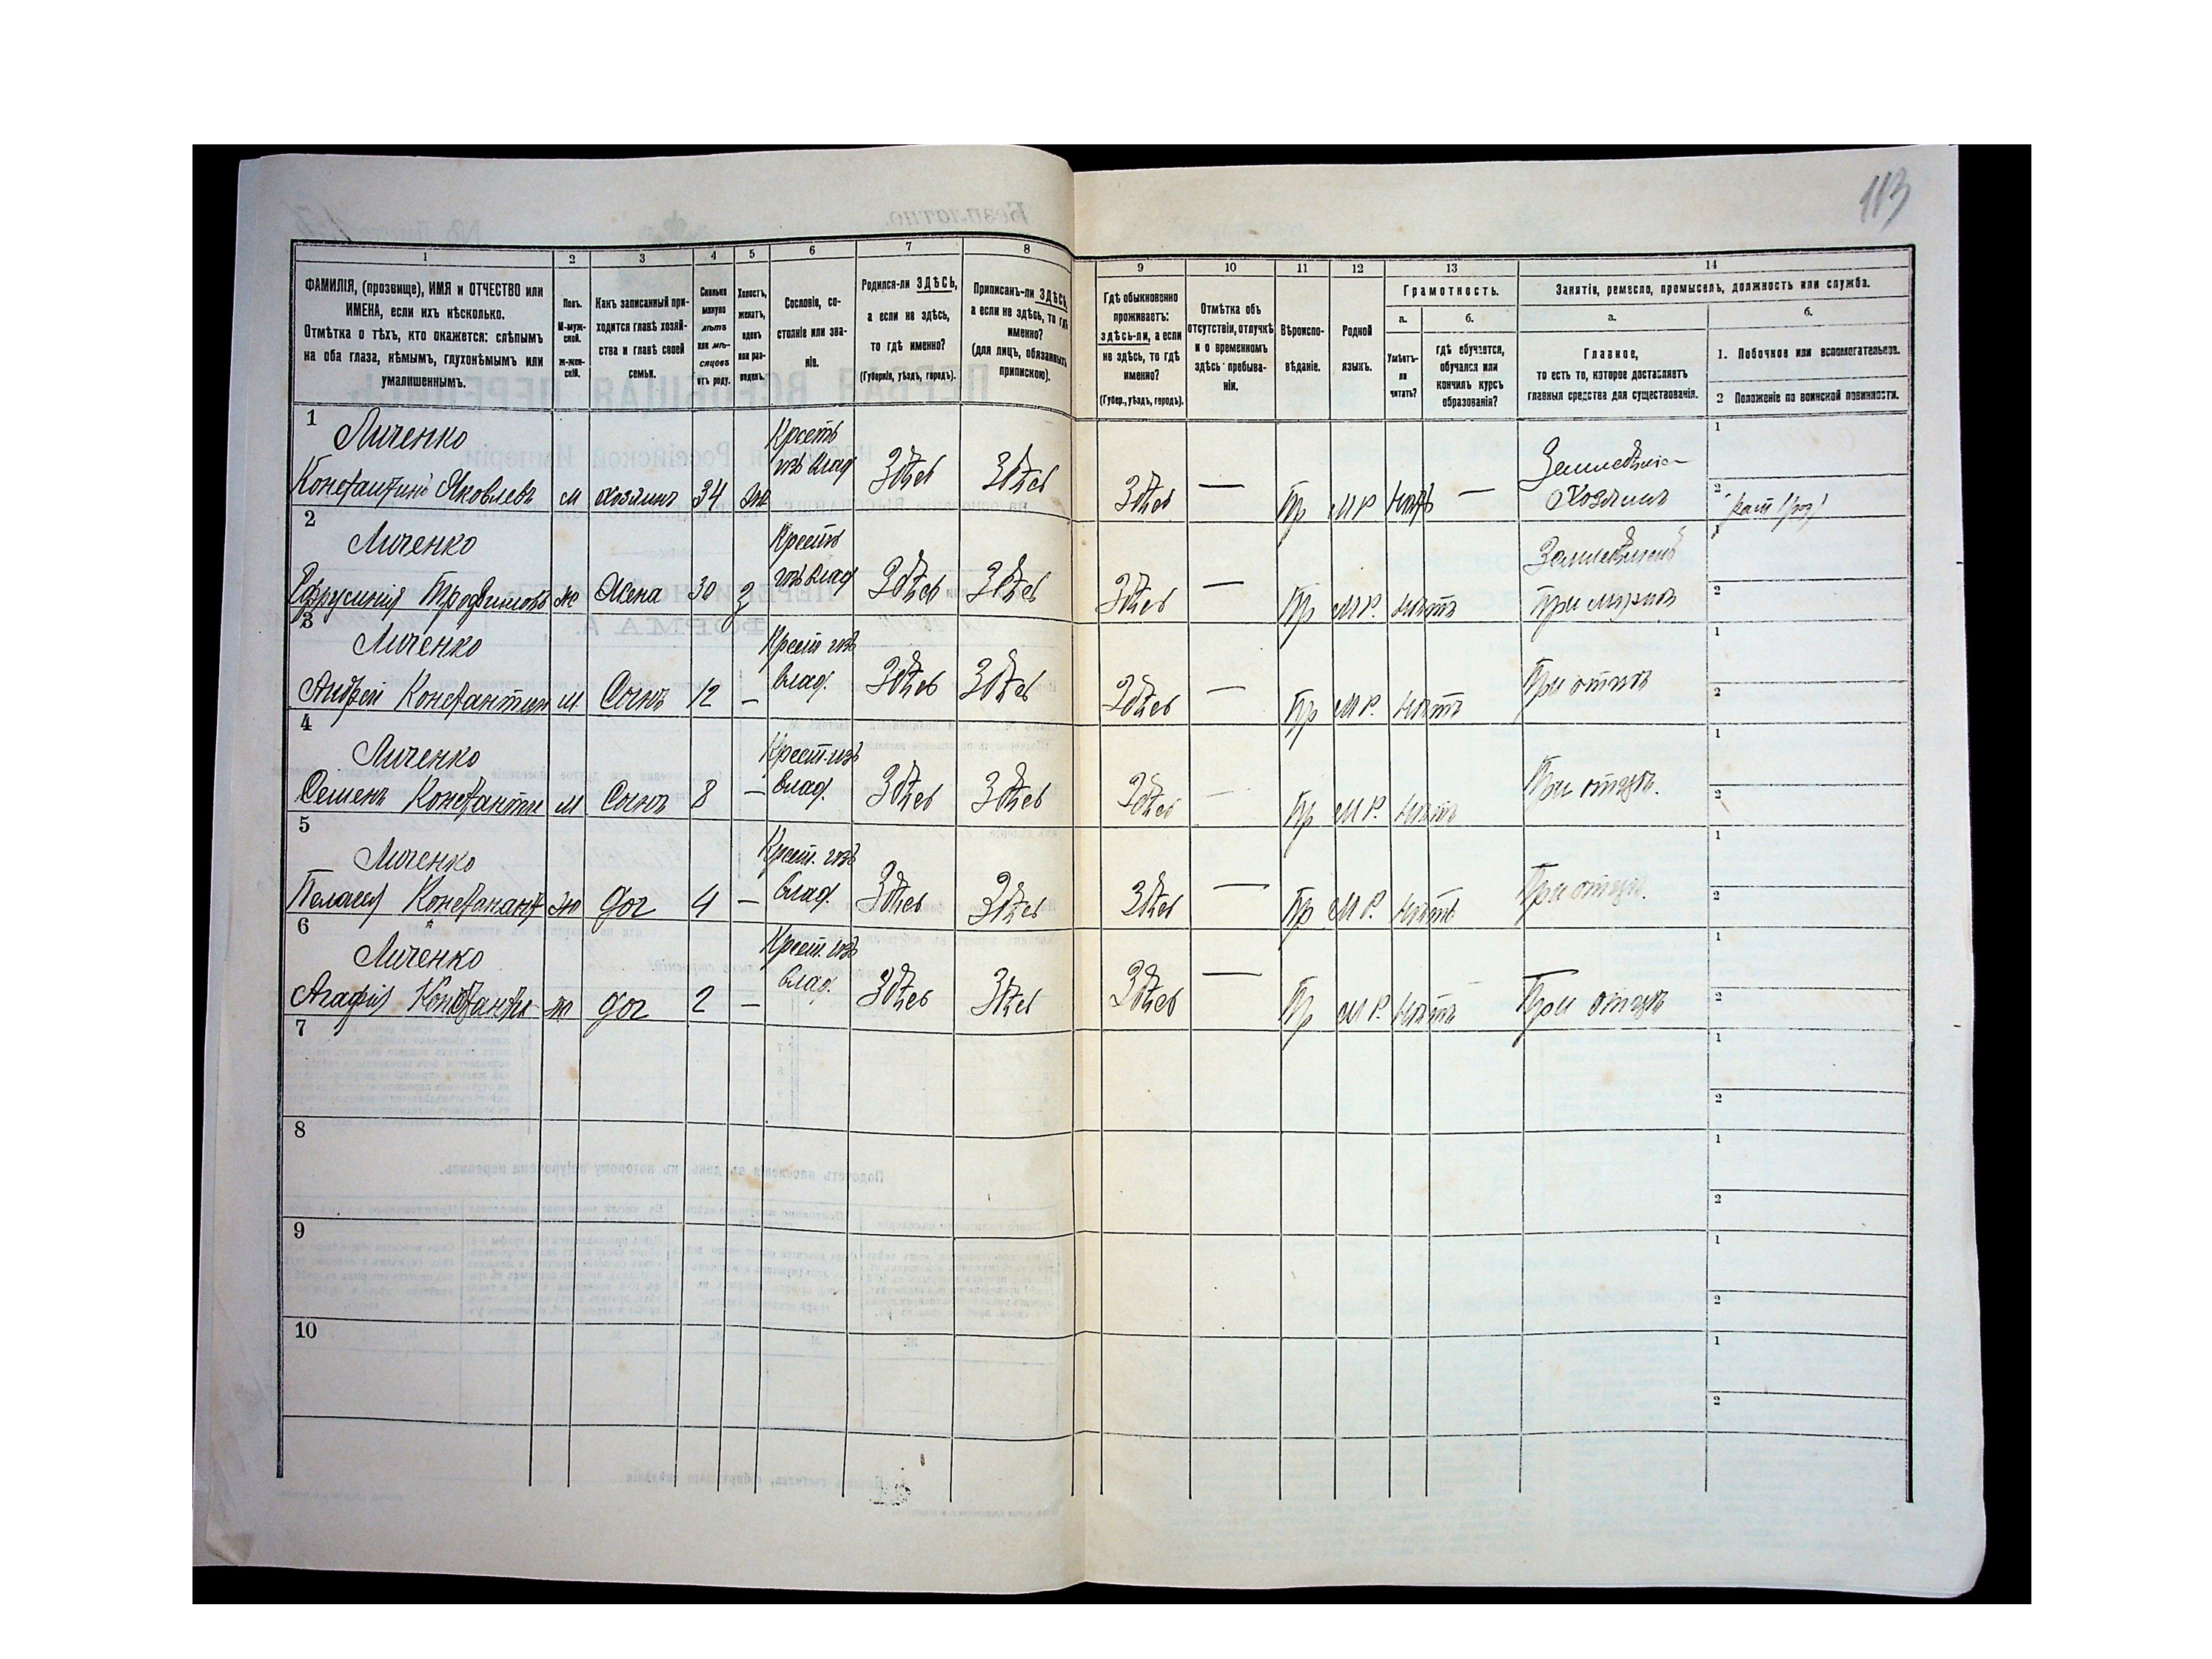 113
1 2 3 4 5 6 7 8 9 10 11 12 13 14
ФАМИЛІЯ, (прозвище), ИМЯ и ОТЧЕСТВО или ИМЕНА, если ихъ нѣсколько.
Отмѣтка о тѣхъ, кто окажется: слѣпымъ на оба глаза, нѣмымъ, глухонѣмымъ или умалишеннымъ.
Полъ. М-мужской. Ж-женскій.
Какъ записанный приходится главѣ хозяйства и главѣ своей семьи.
Сколько минуло лѣтъ или мѣсяцовъ отъ роду.
Холостъ, женатъ, вдовъ или разведенъ.
Сословіе, состояніе или званіе.
Родился-ли ЗДѢСЬ, а если не здѣсь, то гдѣ именно?
(Губернія, уѣздъ, городъ).
Приписанъ-ли ЗДѢСЬ, а если не здѣсь, то гдѣ именно?
(для лицъ, обязанныхъ припискою).
Гдѣ обыкновенно проживаетъ: здѣсь-ли, а если не здѣсь, то гдѣ именно?
(Губер., уѣздъ, городъ).
Отмѣтка объ отсутствіи, отлучкѣ и о временномъ здѣсь пребываніи.
Вѣроисповѣданіе.
Родной языкъ.
Грамотность.
а. б.
Умѣетъ-ли читать?
гдѣ обучается, обучался или кончилъ курсъ образованія?
Занятіе, ремесло, промыселъ, должность или служба.
а. б.
Главное,
то есть то, которое доставляетъ главныя средства для существованія.
1. Побочное или вспомогательное.
2 Положеніе по воинской повинности.
1 Личенко Крестъ
изъ влад Земледѣліе
Константинъ Яковлевъ м хозяинъ 34 ж Здѣсь Здѣсь Здѣсь — Пр МР нѣтъ — Хозяинъ
2 Личенко Крестъ
изъ влад
Ефрусинія Трофимовъ ж Жена 30 З Здѣсь Здѣсь Здѣсь — Пр МР. нѣтъ При мужѣ
3 Личенко Крест изъ
Андрей Константин м Сынъ 12 — влад. Здѣсь Здѣсь Здѣсь — Пр МР. нѣтъ При отцѣ
4 Личенко Крест. изъ
Семенъ Константи м Сынъ 8 — влад. Здѣсь Здѣсь Здѣсь — Пр МР. нѣтъ При отцѣ.
5 Личенко Крест. изъ
Пелагея Констанант ж доч 4 — влад. Здѣсь Здѣсь Здѣсь — Пр МР. нѣтъ При отцѣ.
6 Личенко Крест. изъ
Агафія Константи ж доч 2 — влад. Здѣсь Здѣсь Здѣсь — Пр МР. нѣтъ При отцѣ
7
8
9
10